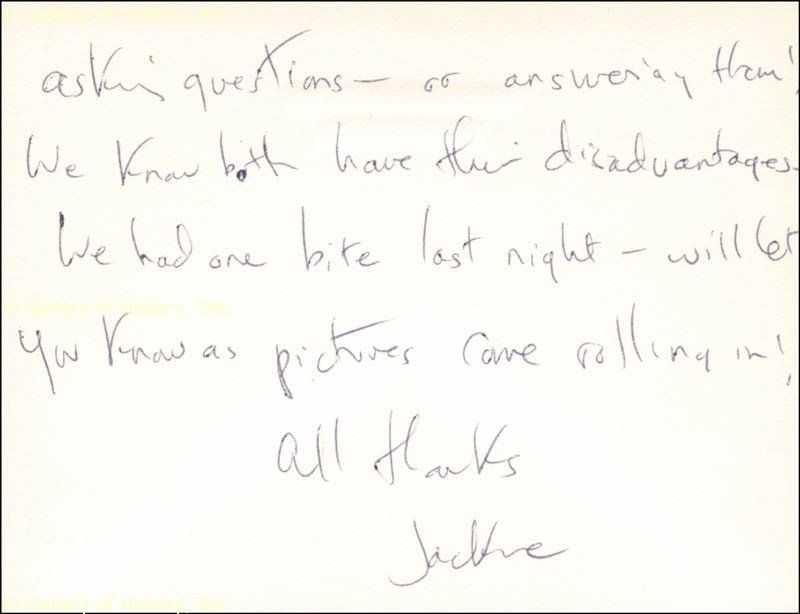 © Gallery of History, Inc.
asking questions — or answering them!
We know both have their disadvantages.
We had one bite last night — will let
© Gallery of History, Inc.
you know as pictures come rolling in!
All thanks
Jackie
© Gallery of History, Inc.